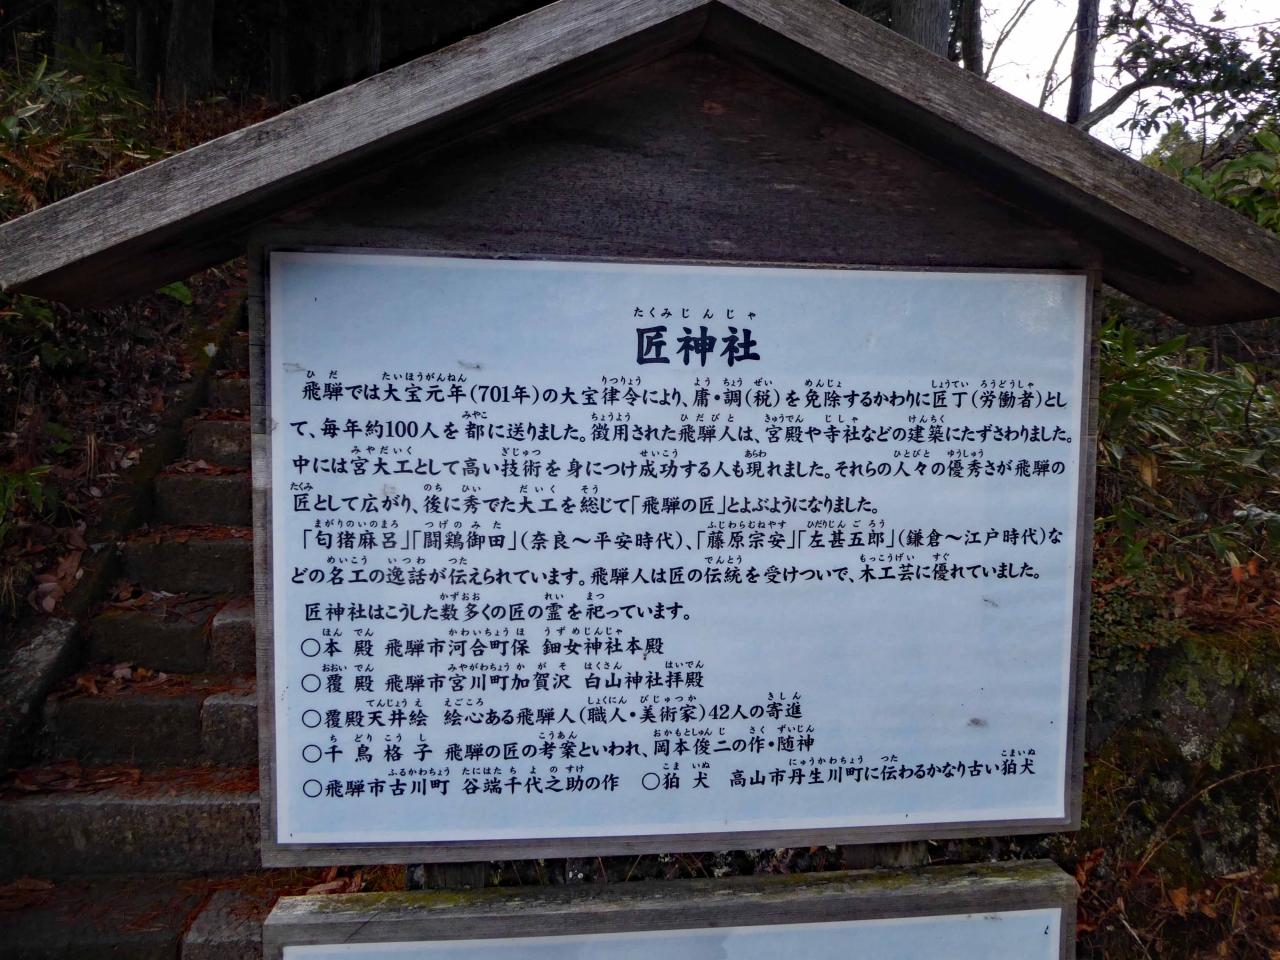 たくみじんじゃ
匠神社
飛騨では大宝元年(701年)の大宝律令により、庸・調(税)を免除するかわりに匠丁(労働者)とし
て、毎年約100人を都に送りました。徴用された飛騨人は、宮殿や寺社などの建築にたずさわりました。
中には宮大工として高い技術を身につけ成功する人も現れました。それらの人々の優秀さが飛騨の
匠として広がり、後に秀でた大工を総じて「飛騨の匠」とよぶようになりました。
「匂猪麻呂」「闘鶏御田」(奈良〜平安時代)、「藤原宗安」「左甚五郎」(鎌倉〜江戸時代)な
どの名工の逸話が伝えられています。飛騨人は匠の伝統を受けついで、木工芸に優れていました。
匠神社はこうした数多くの匠の霊を祀っています。
○本殿 飛騨市河合町保 鈿女神社本殿
○覆殿 飛騨市宮川町加賀沢 白山神社拝殿
○覆殿天井絵 絵心ある飛騨人(職人・美術家)42人の寄進
○千鳥格子 飛騨の匠の考案といわれ、岡本俊二の作・随神
○飛騨市古川町 谷端千代之助の作 ○狛犬 高山市丹生川町に伝わるかなり古い狛犬